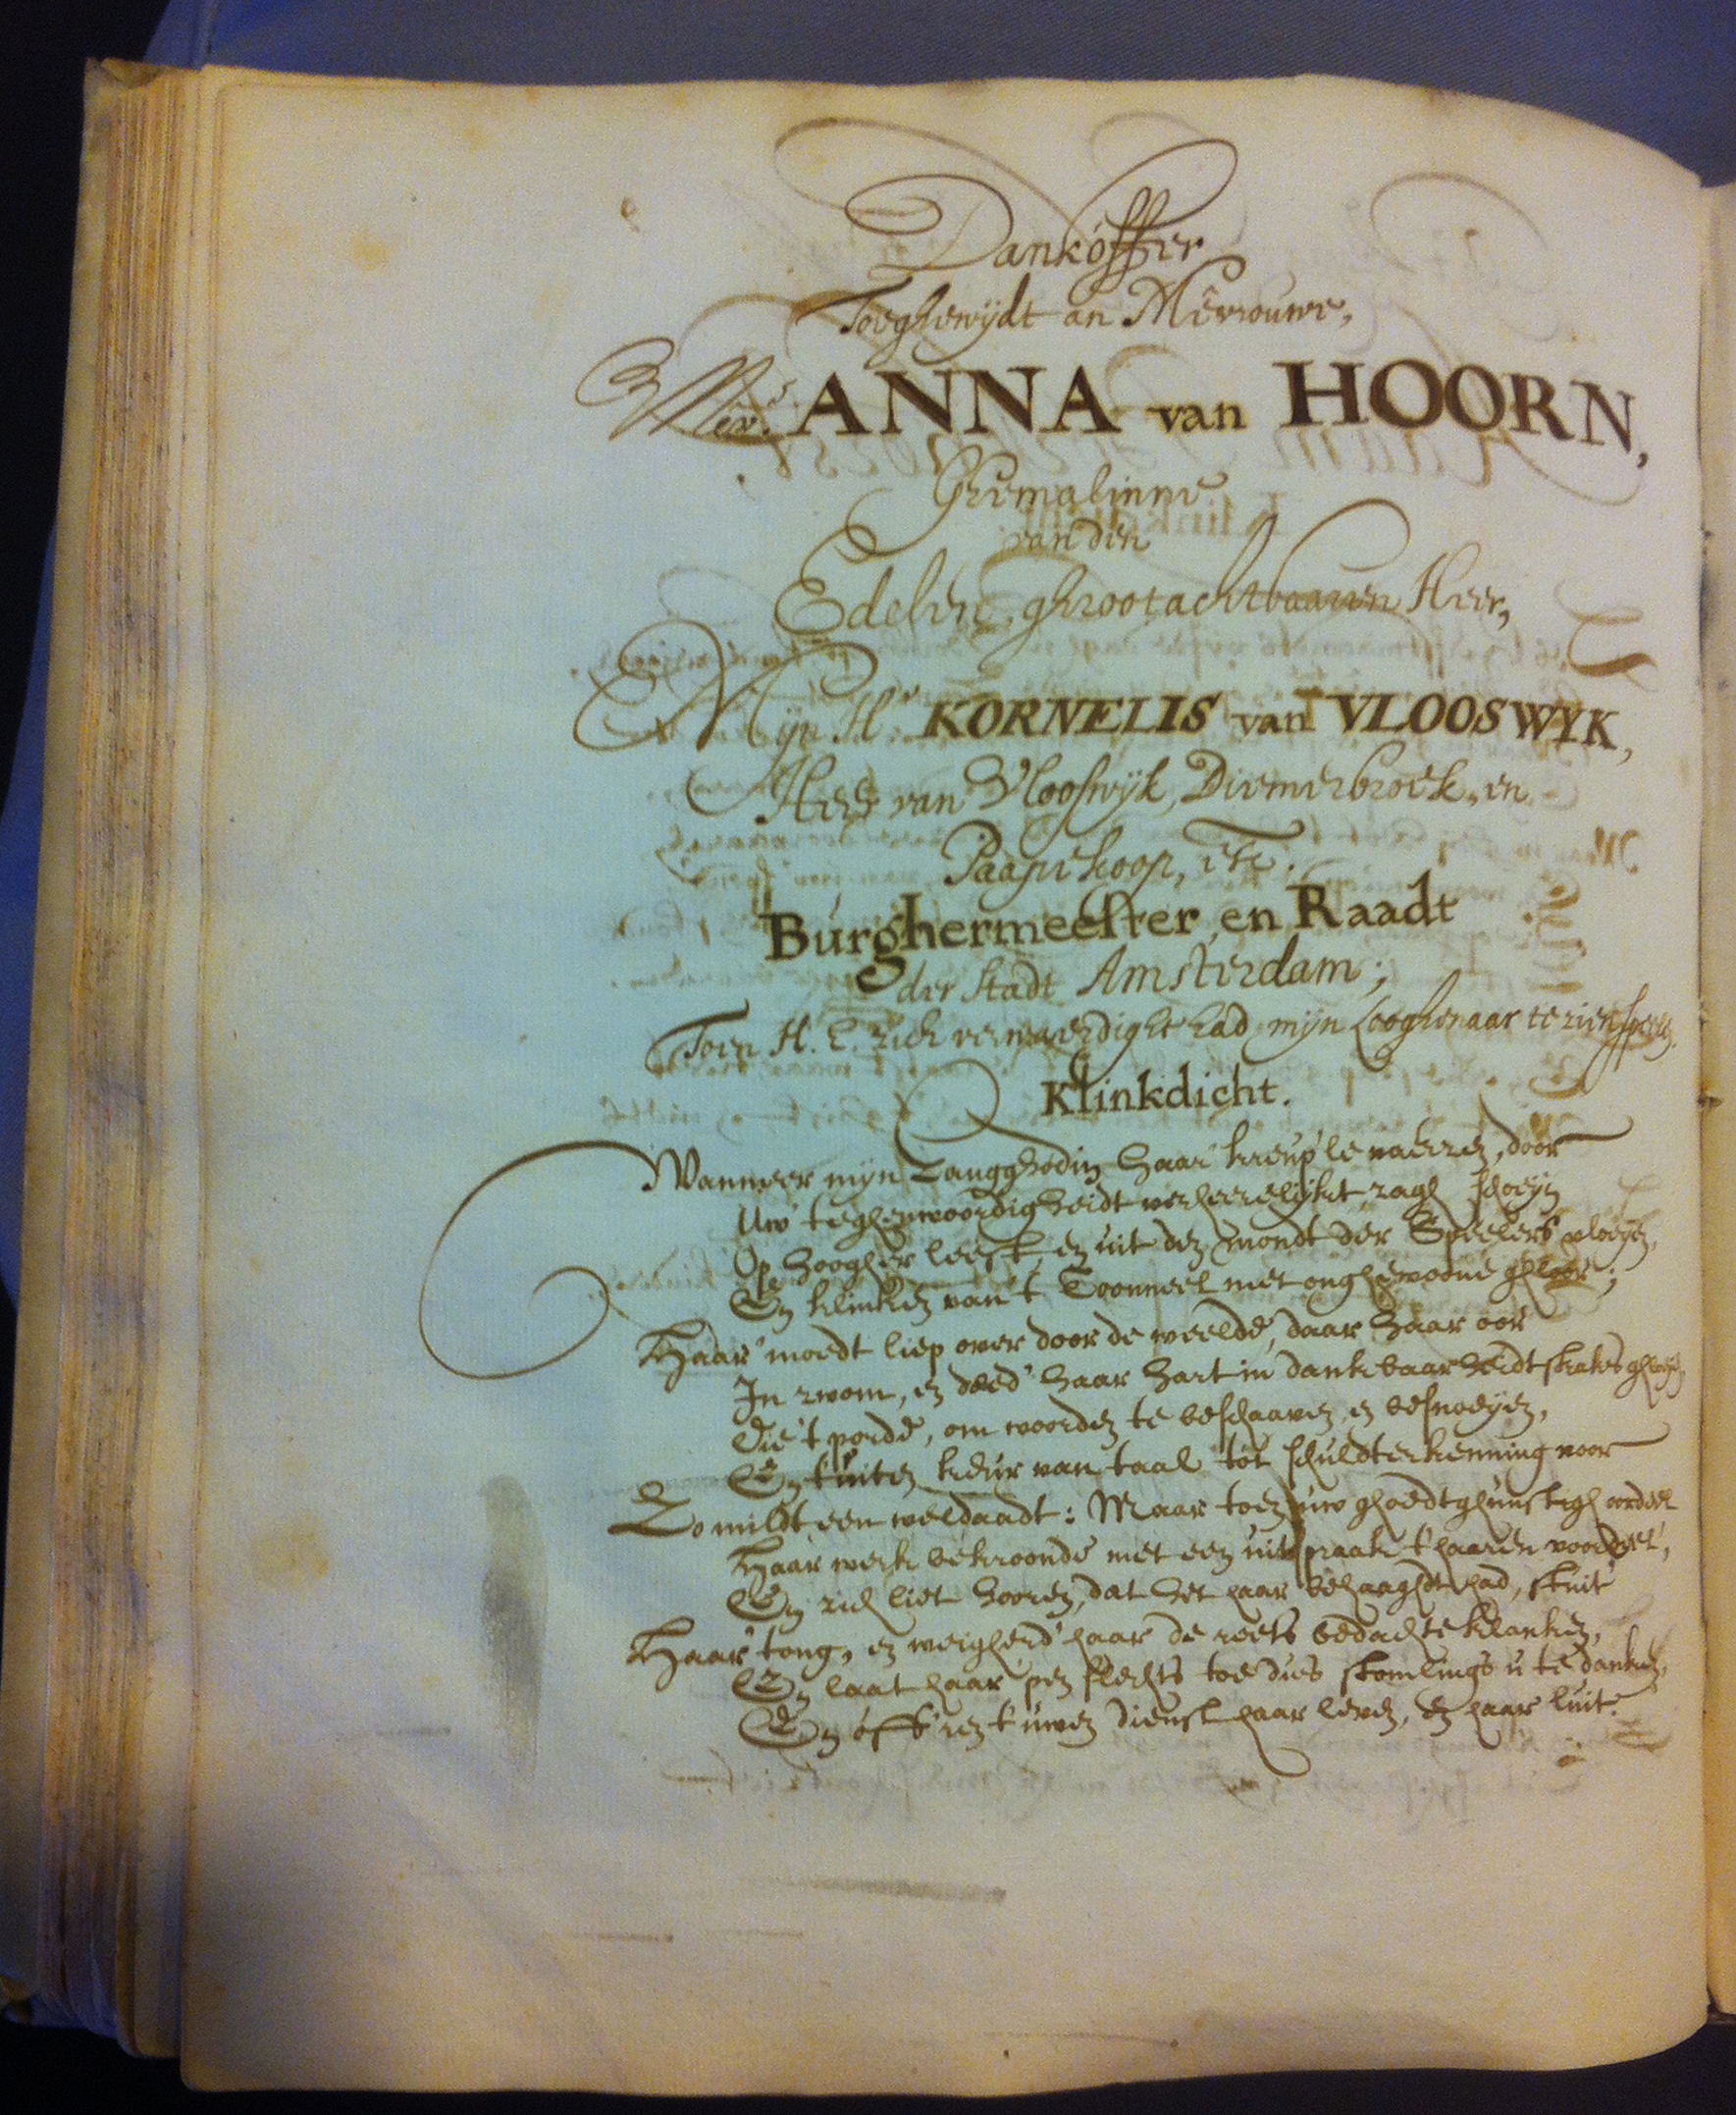 Dankóffer
Toeghewijdt an Mêvrouwe,
Mêvr. ANNA van HOORN,
Ghemalinne
van den
Edelen, ghrootachtbaaren Heer,
Mijn Hr KORNELIS van VLOOSWYK,
Heer van Vlooswijk, Diemerbroek, en
Paapekoop, etc.
Burghermeester, en Raadt
der Stadt Amsterdam;
Toen H. E. zich verwaerdight had mijn Looghenaar te zien speelen.
Klinkdicht.
Wanneer mijn Zangghodin haar kreup'le vaerzen, door
Uw' teghenwoordigheidt verheerelijkt, zagh schoeijen
Op hoogher leest, en uit den mondt der Speelers vloeijen,
En klinken van 't Tooneel met onghewoone ghloor;
Haar' moedt liep over door de weelde, daar haar oor
In zwom, en deed' haar hart in dankbaarheidt straks ghloeijen,
Die 't porde, om woorden te beschaaven, en besnoeijen,
En t'uiten keur van taal tót schuldterkenning voor
Zo mildt een weldaadt: Maar toen uw ghoedtghunstigh oordeel
Haar werk bekroonde met een uitspraak t'haaren voordeel,
En zich liet hooren, dat het haar behaaghdt had, stuit
Haar' tong, en weigherd' haar de reets bedachte klanken,
En laat haar pen slechts toe dus stomlings u te danken,
En óff'ren t'uwen dienst haar leven, en haar luit.